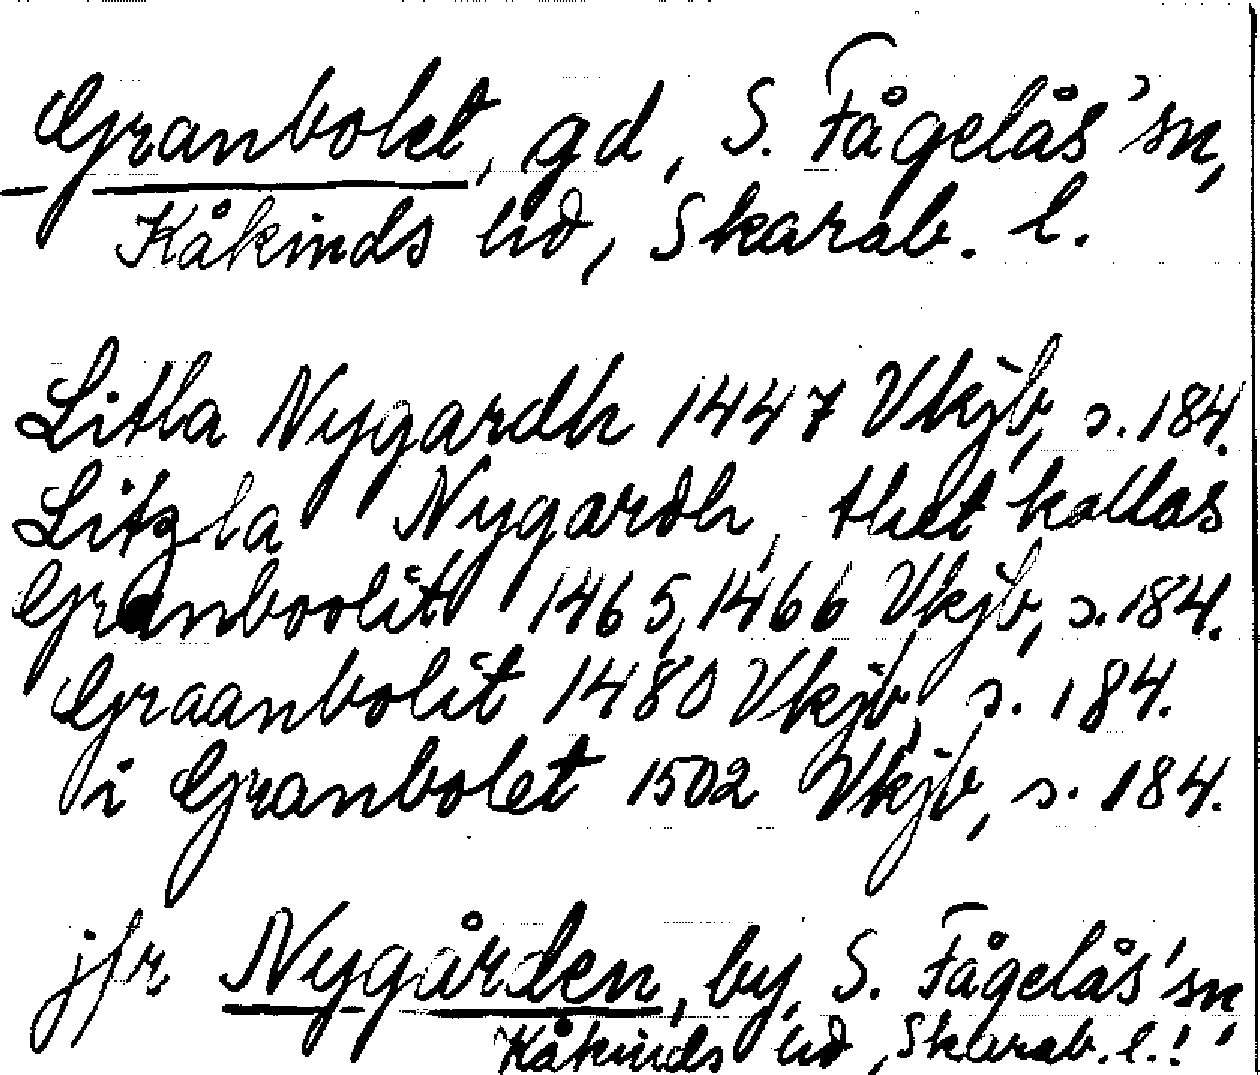 Granbolet, gd, S. Fågelås' sn,
Kåkinds hd, Skarab. l.
Litla Nygardh 1447 Vkjb, s. 184.
Litzla Nygardh, thet kallas
Granboolit 1465, 1466 Vkjb, s. 184.
Graanbolit 1480 Vkjb, s. 184.
i Granbolet 1502 Vkjb, s. 184.
jfr Nygården, by, S. Fågelås' sn,
Kåkinds hd, Skarab. l.!